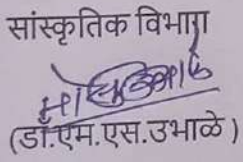 सांस्कृतिक विभाग
(डॉ.एम.एस.उभाळे )